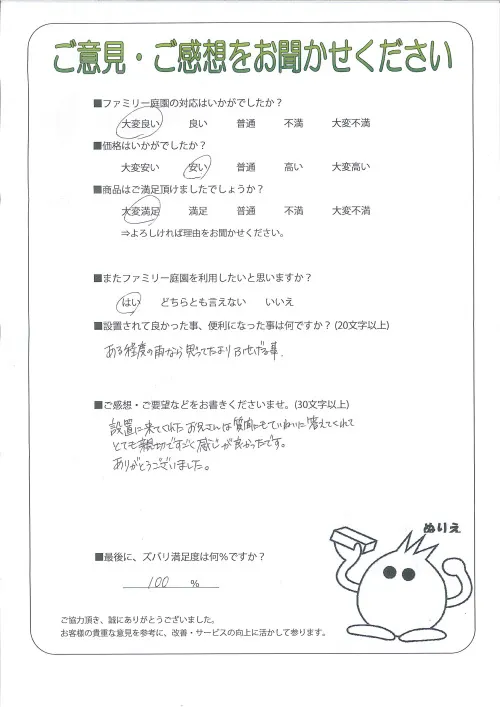 ご意見・ご感想をお聞かせください
■ファミリー庭園の対応はいかがでしたか？
大変良い 良い 普通 不満 大変不満
■価格はいかがでしたか？
大変安い 安い 普通 高い 大変高い
■商品はご満足頂けましたでしょうか？
大変満足 満足 普通 不満 大変不満
⇒よろしければ理由をお聞かせください。
■またファミリー庭園を利用したいと思いますか？
はい どちらとも言えない いいえ
■設置されて良かった事、便利になった事は何ですか？(20文字以上)
ある程度の雨なら思ってたより防げる事.
■ご感想・ご要望などをお書きくださいませ。(30文字以上)
設置に来てくれたお兄さんは質問にもていねいに答えてくれて
とても親切ですごく感じが良かったです。
ありがとうございました。
ぬりえ
■最後に、ズバリ満足度は何％ですか？
100 %
ご協力頂き、誠にありがとうございました。
お客様の貴重な意見を参考に、改善・サービスの向上に活かして参ります。